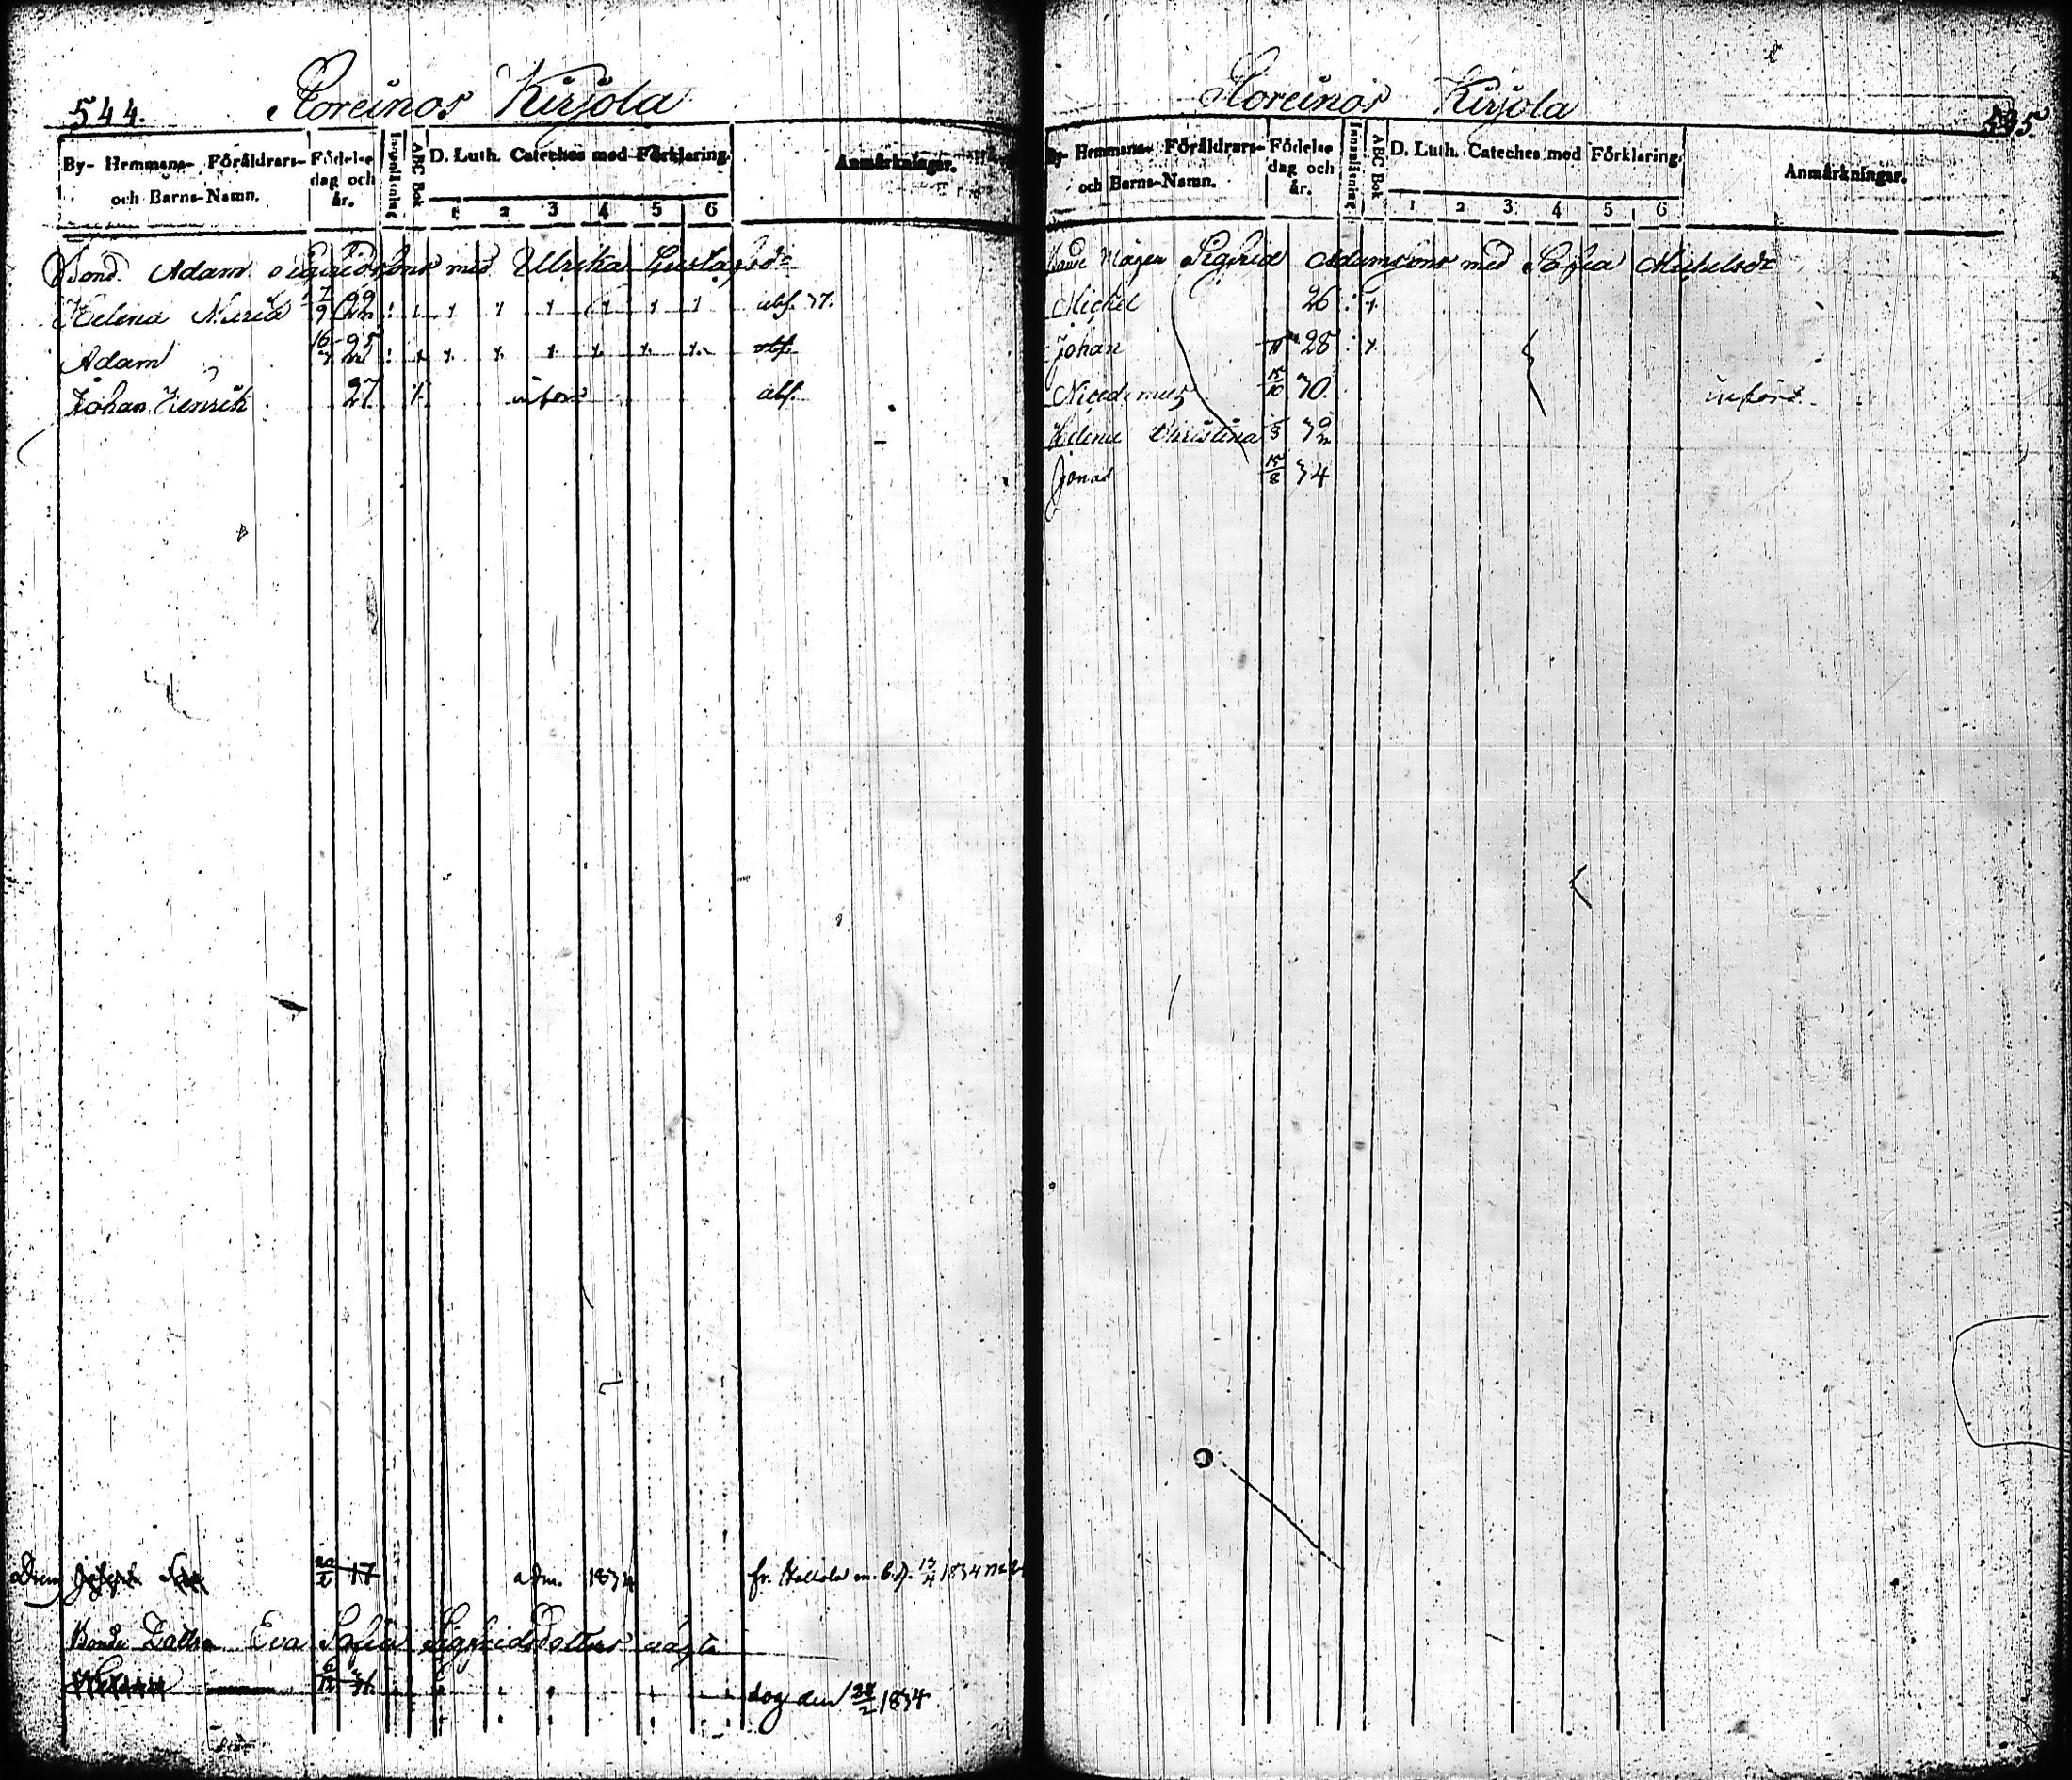 544.
Koreinos Kirjola
By- Hemmans- Föräldrars- och Barns-Namn.
Födelse dag och år.
Innanläsning
ABC Bok
D. Luth. Cateches med Förklaring.
1 2 3 4 5 6
Anmärkningar.
Bond. Adam Sigfridsons med Ulrika Gustafsdr
Helena Maria 22 abs. 37.
Adam 16 25 abs.
Johan Henrik 27 införd abs.
Dräng Joseph 17 adm. 1834 fr. Kattola m. b.
Bonde Dottren Eva Sofia Sigfridsdotters oägta
dog den 28/2 1834
Koreinos Kirjola
545.
By- Hemmans- Föräldrars- och Barns-Namn.
Födelse dag och år.
Innanläsning
ABC Bok
D. Luth. Cateches med Förklaring.
1 2 3 4 5 6
Anmärkningar.
Bonde Mågen Sigfrid Adamsons med Sofia Michelsdr
Michel 26
Johan 28
Nicodemus 15/10 30. införd
Helena Christina 32
Jonas 15/8 34